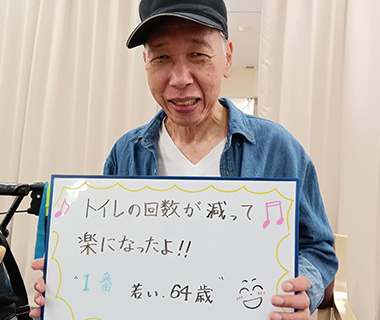 トイレの回数が減って
楽になったよ!!
"1番 若い.64歳"